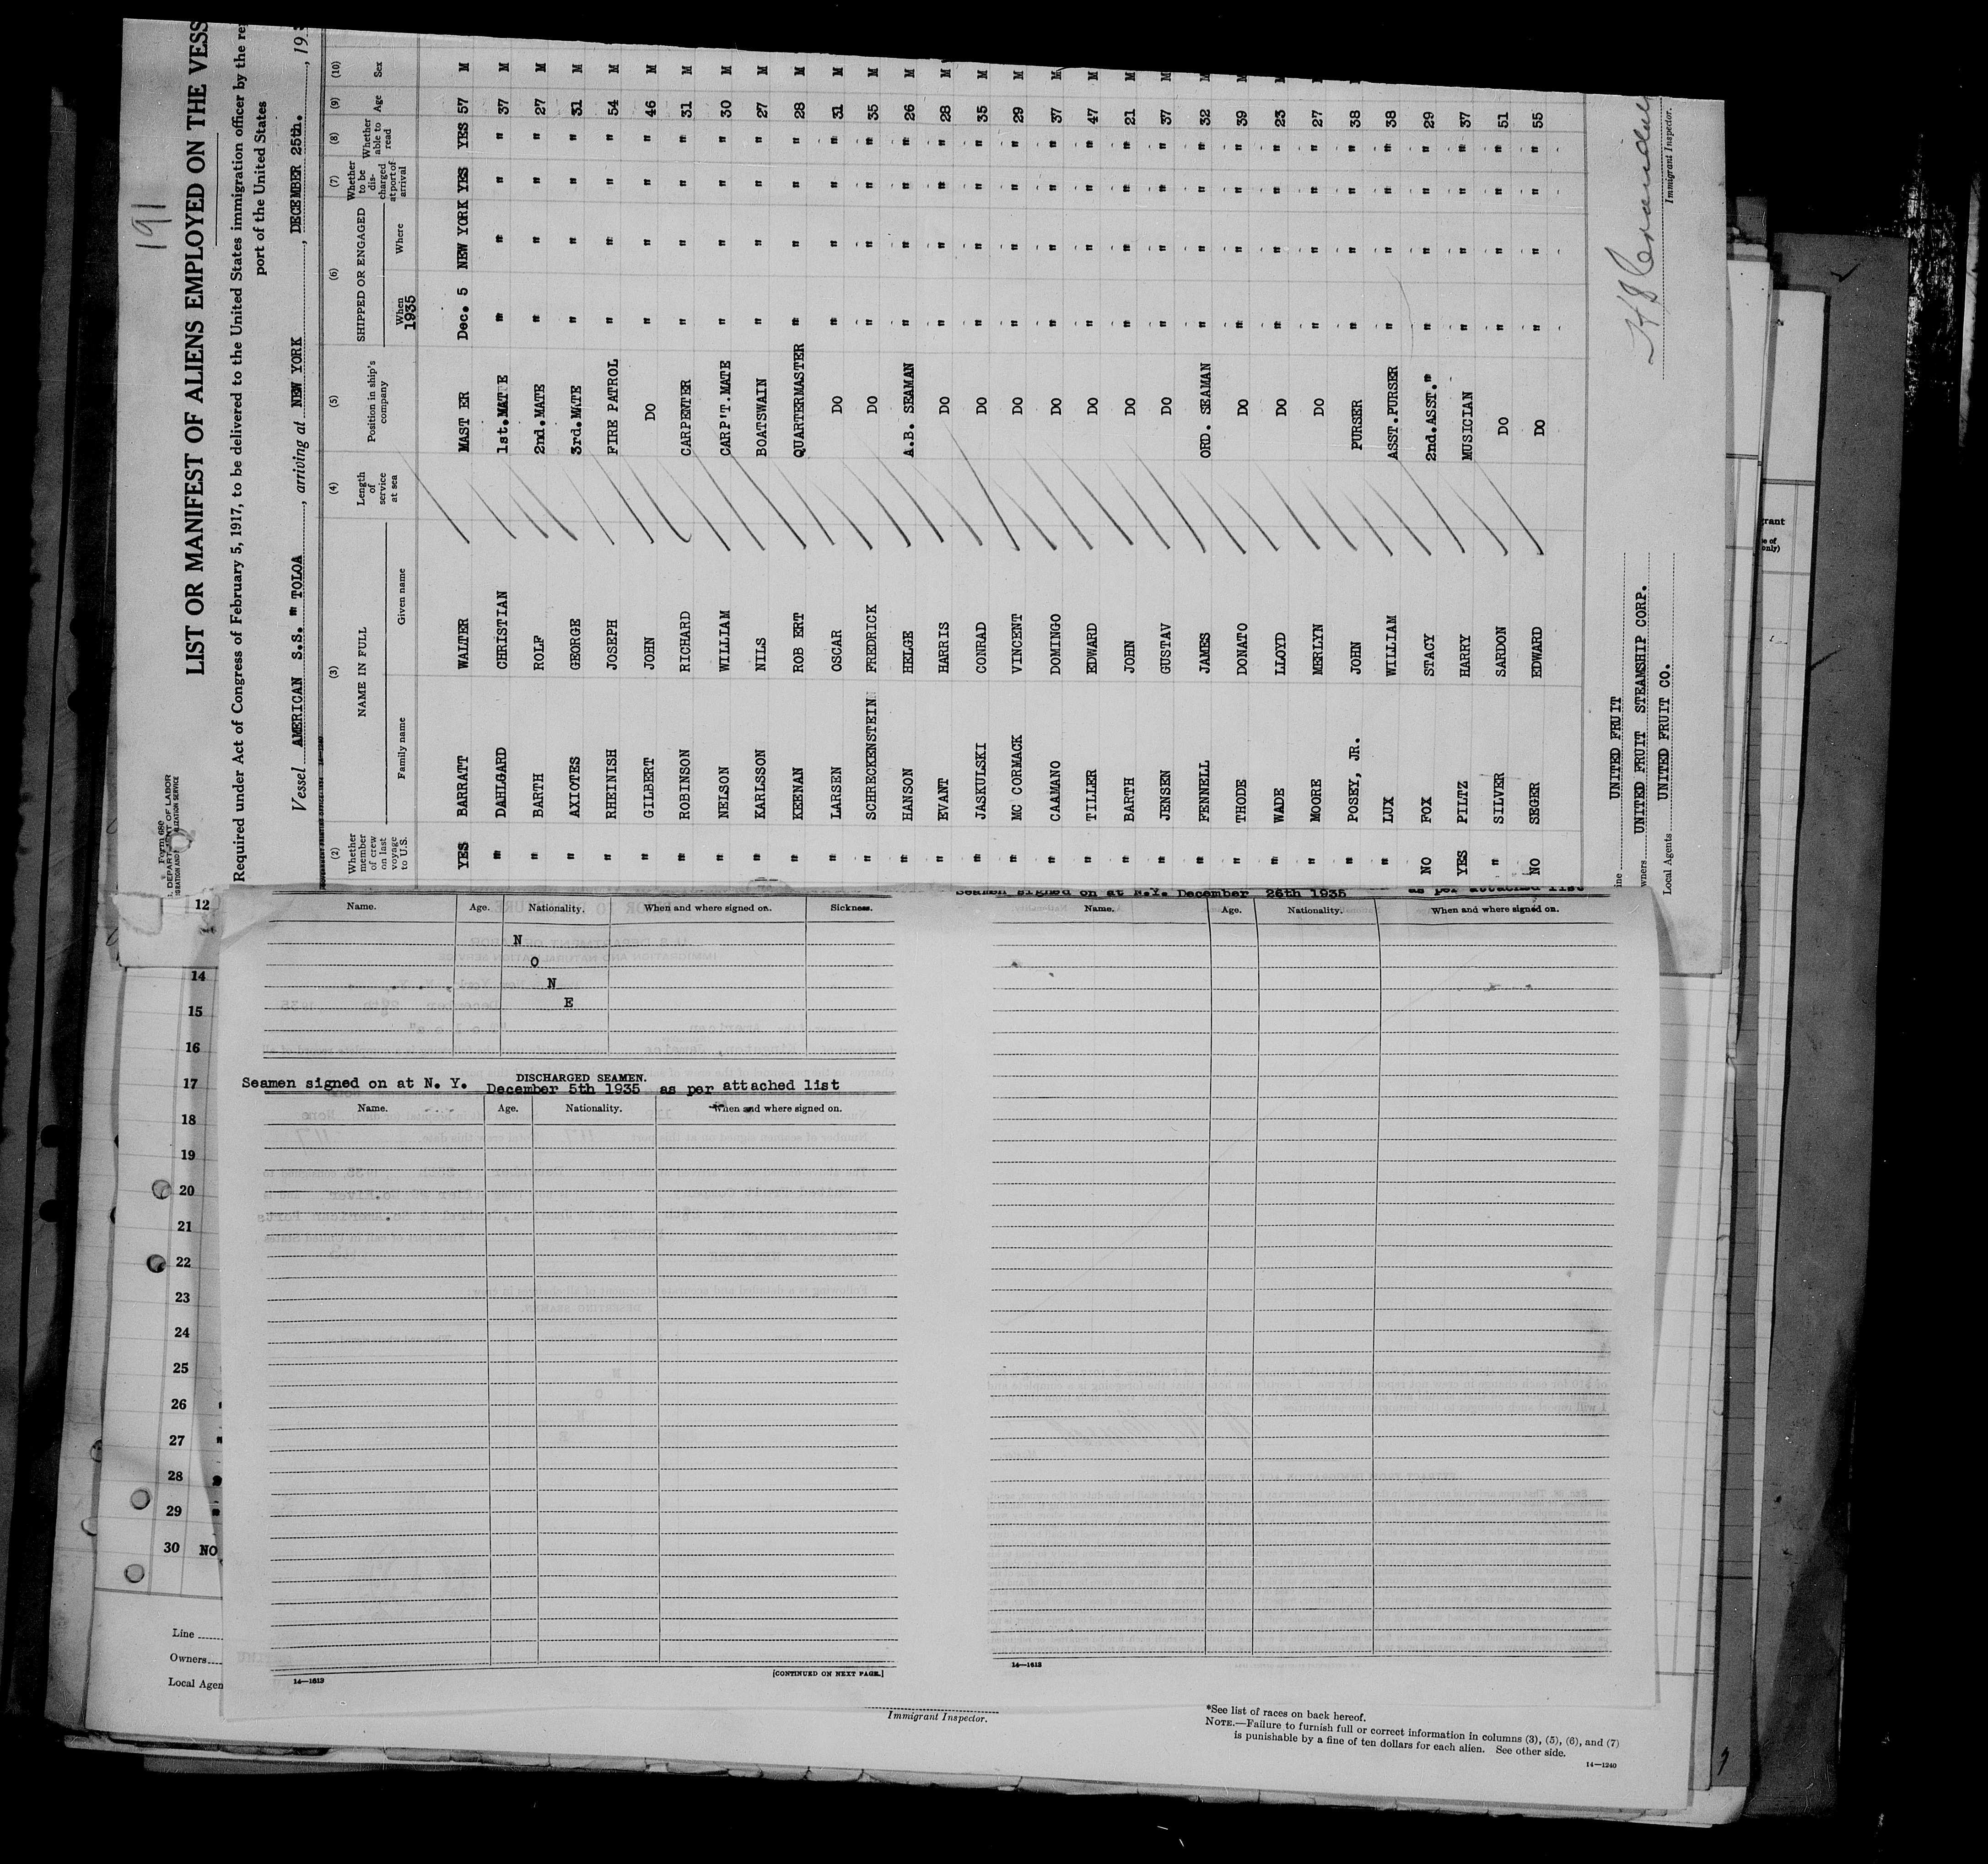 191
Form 680
DEPARTMENT OF LABOR
LIST OR MANIFEST OF ALIENS EMPLOYED ON THE VESS
Required under Act of Congress of February 5, 1917, to be delivered to the United States immigration officer by the re
port of the United States
Vessel AMERICAN S.S. " TOLOA , arriving at NEW YORK , DECEMBER 25th. , 193
(2) (3) (4) (5) (6) (7) (8) (9) (10)
Whether member of crew on last voyage to U.S. NAME IN FULL Family name Given name Length of service at sea Position in ship's company SHIPPED OR ENGAGED When 1935 Where Whether to be discharged at port of arrival Whether able to read Age Sex
YES BARRATT WALTER MAST ER Dec. 5 NEW YORK YES YES 57 M
" DAHLGARD CHRISTIAN 1st.MATE " " " " 37 M
" BARTH ROLF 2nd.MATE " " " " 27 M
" AXIOTES GEORGE 3rd.MATE " " " " 31 M
" RHEINISH JOSEPH FIRE PATROL " " " " 54 M
" GILBERT JOHN DO " " " " 46 M
" ROBINSON RICHARD CARPENTER " " " " 31 M
" NELSON WILLIAM CARP'T.MATE " " " " 30 M
" KARLSSON NILS BOATSWAIN " " " " 27 M
" KEENAN ROB ERT QUARTERMASTER " " " " 28 M
" LARSEN OSCAR DO " " " " 31 M
" SCHRECKENSTEIN FREDRICK DO " " " " 35 M
" HANSON HELGE A.B. SEAMAN " " " " 26 M
" EVANT HARRIS DO " " " " 28 M
" JASKULSKI CONRAD DO " " " " 35 M
" MC CORMACK VINCENT DO " " " " 29 M
" CAAMANO DOMINGO DO " " " " 37 M
" TILLER EDWARD DO " " " " 47 M
" BARTH JOHN DO " " " " 21 M
" JENSEN GUSTAV DO " " " " 37 M
" FENNELL JAMES ORD. SEAMAN " " " " 32 M
" THODE DONATO DO " " " " 39 M
" WADE LLOYD DO " " " " 23 M
" MOORE MERLYN DO " " " " 27
" POSEY, JR. JOHN PURSER " " " " 38
" LUX WILLIAM ASST.PURSER " " " " 38
NO FOX STACY 2nd.ASST." " " " " 29
YES PILTZ HARRY MUSICIAN " " " " 37
" SILVER SARDON DO " " " " 51
NO SEGER EDWARD DO " " " " 55
Line UNITED FRUIT
Owners UNITED FRUIT STEAMSHIP CORP.
Local Agents UNITED FRUIT CO.
Immigrant Inspector.
12
14
15
16
17
18
19
20
21
22
23
24
25
26
27
28
29
30 NO
Line
Owners
Local Agen
Name. Age. Nationality. When and where signed on. Sickness.
N
O
N
E
DISCHARGED SEAMEN.
Seamen signed on at N. Y. December 5th 1935 as per attached list
Name. Age. Nationality. When and where signed on.
14—1613
[CONTINUED ON NEXT PAGE.]
Seamen signed on at N.Y. December 26th 1935 as per attached list
Name. Age. Nationality. When and where signed on.
14—1613
Immigrant Inspector.
*See list of races on back hereof.
NOTE.—Failure to furnish full or correct information in columns (3), (5), (6), and (7)
is punishable by a fine of ten dollars for each alien. See other side.
14—1240